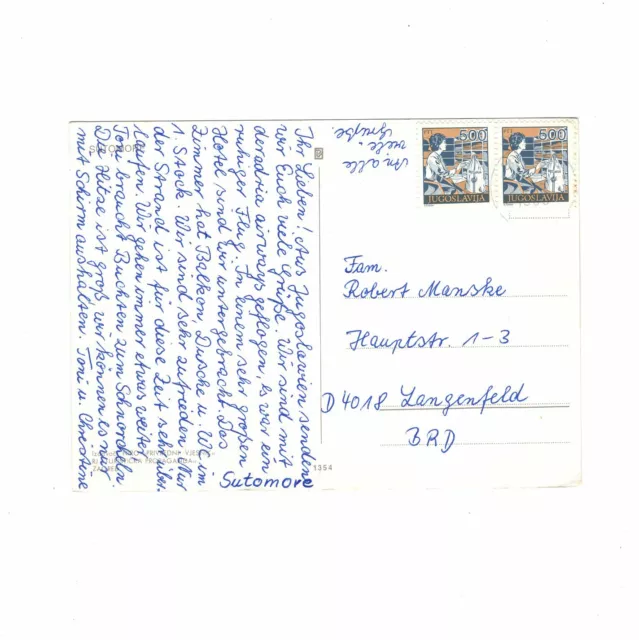 Ihr Lieben! Aus Jugoslavien senden
wir Euch viele Grüße. Wir sind mit
der adria airways geflogen, es war ein
ruhiger Flug. In einem sehr großen
Hotel sind wir untergebracht. Das
Zimmer hat Balkon, Dusche u. WC im
1. Stock. Wir sind sehr zufrieden. Nur
der Strand ist für diese Zeit sehr über
laufen. Wir gehen immer etwas weiter
Toni braucht Buchten zum Schnorcheln.
Die Hitze ist groß wir können es nur
mit Schirm aushalten. Toni u. Christine
An alle
viele
Grüße.
SUTOMORE
ZAGREB
1354
Sutomore
500
JUGOSLAVIJA
500
JUGOSLAVIJA
Fam.
Robert Manske
Hauptstr. 1-3
D 4018 Langenfeld
BRD